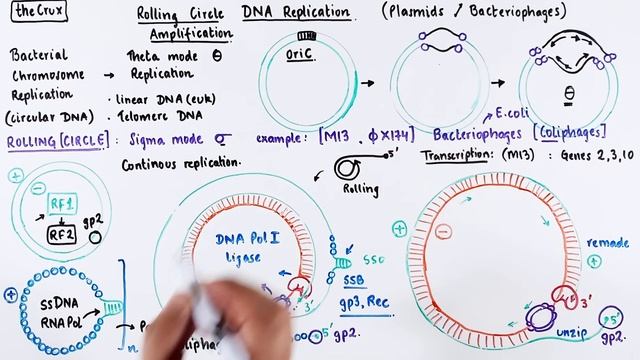 theCrux
Rolling Circle DNA Replication (Plasmids / Bacteriophages)
Amplification
Bacterial
Chromosome
Replication
(circular DNA)
→ Theta mode θ
Replication
· linear DNA (euk)
· Telomere DNA
OriC
θ
E.coli
ROLLING [CIRCLE] : Sigma mode σ example: [M13, ΦX174] Bacteriophages [Coliphages]
Continous replication.
5'
Rolling
Transcription: (M13) : Genes 2,3,10
+
-
RF1
RF2
gp2
+
ssDNA
RNAPol
n
DNA Pol I
ligase
SSB
gp3, Rec
3'
5' gp2.
+
-
remade
+
3'
unzip
5'
gp2.